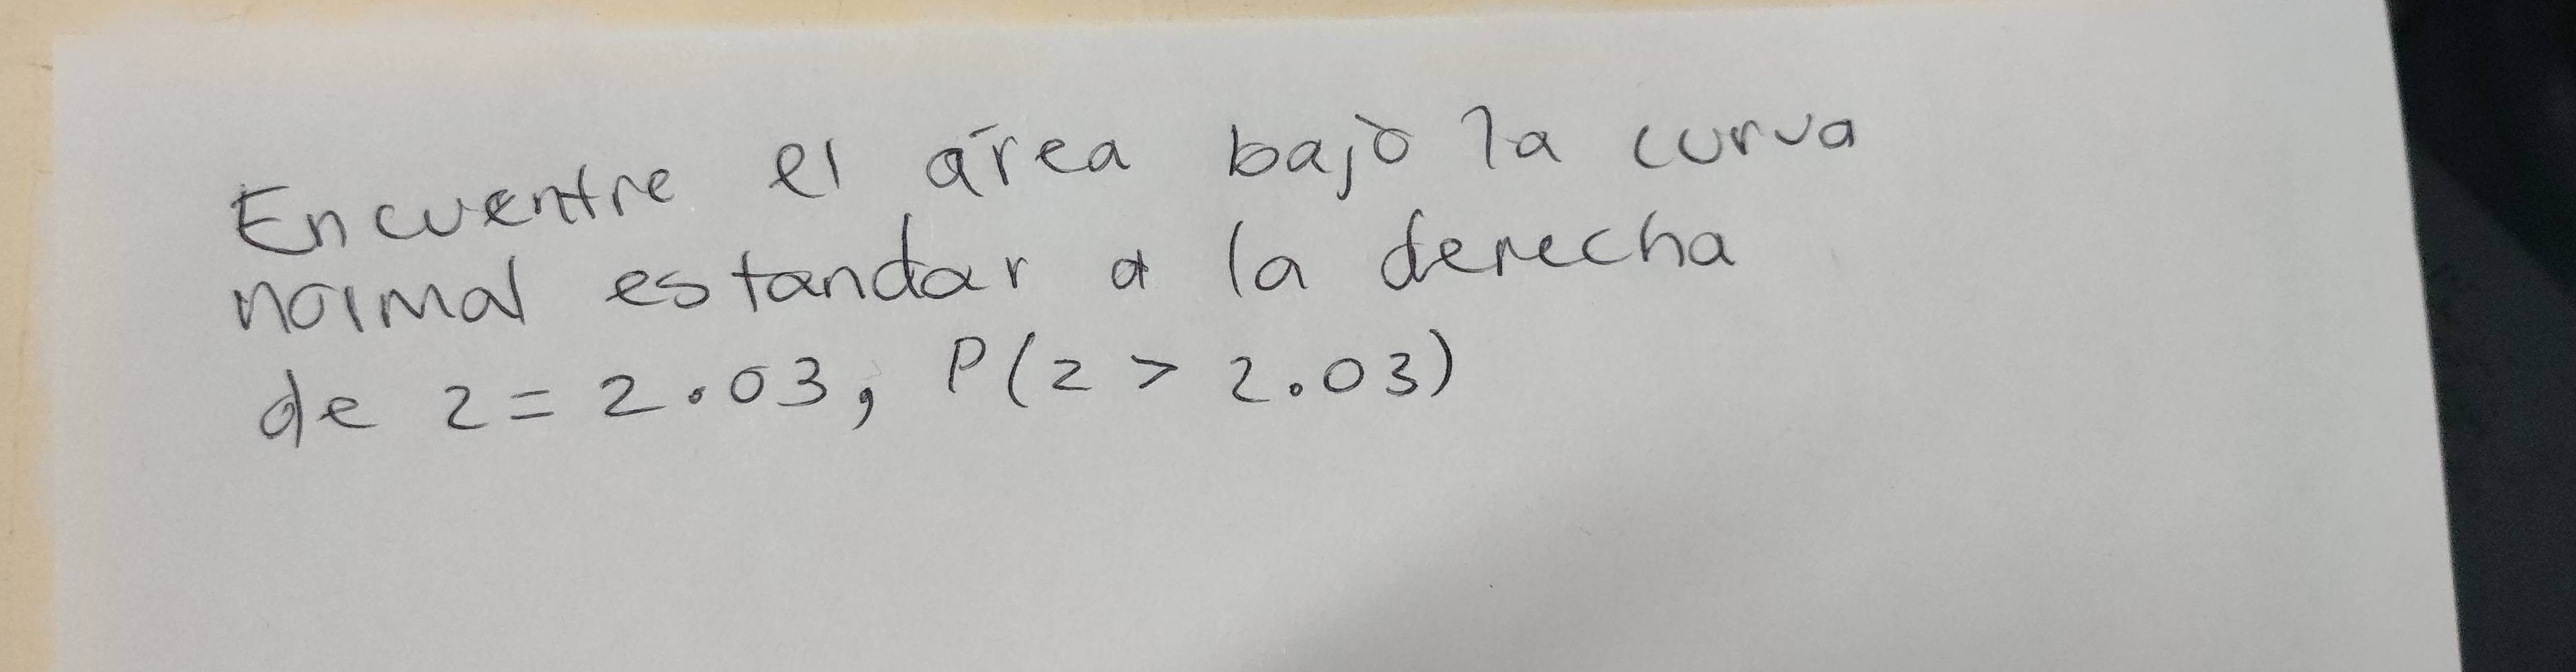 Encuentre el área bajo la curva
normal estandar a la derecha
de z = 2.03, P(z > 2.03)